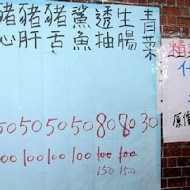 豬心
豬肝
豬舌
鯊魚
透抽
生腸
青菜
50 50 50 50 80 80 30
100 100 100 100 100 100
150 150
類
什